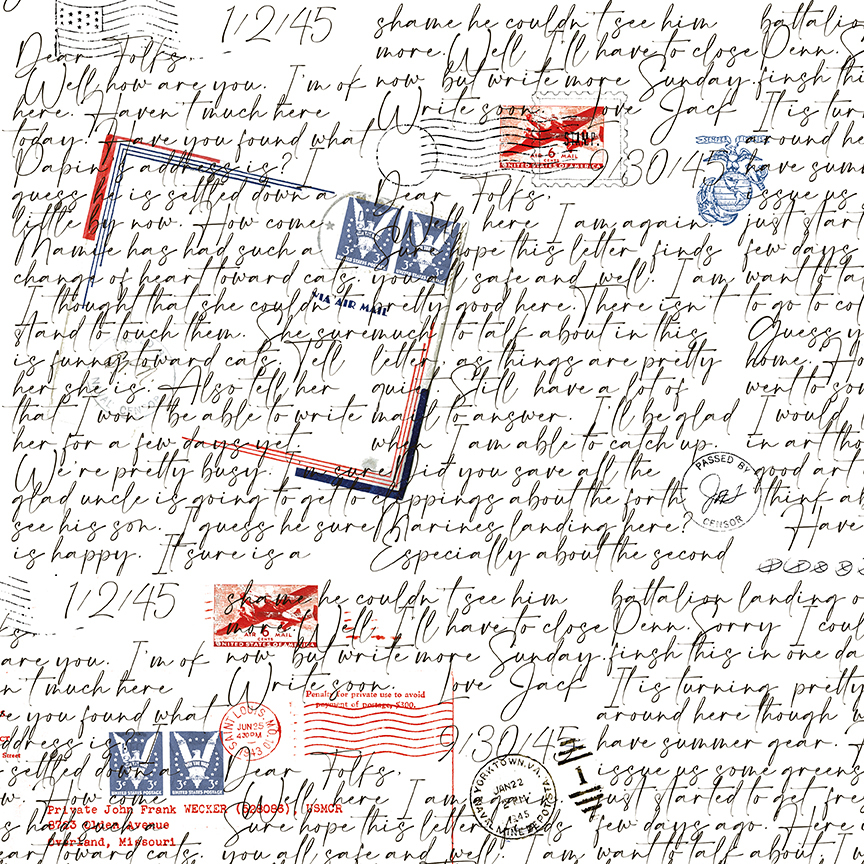 1/2/45
Dear Folks.
Well, how are you. I'm ok
here. Haven't much here
today. Have you found what
Dapin's address is?
guess he is settled down a
little by now. How come
Mamie has had such a
change of heart toward cats.
I thought that she couldn't
stand to touch them. She sure
is funny toward cats. Tell
her she is. Also tell her
that I won't be able to write
her for a few days yet.
We're pretty busy.
glad uncle is going to get to
see his son. I guess he sure
is happy. It sure is a
shame he couldn't see him
more. Well I'll have to close
now but write more Sunday.
Write soon. Love Jack
9/30/45
Dear Folks.
Well here I am again.
Sure hope this letter finds
you all safe and well. I am
pretty good here. There isn't
much to talk about in this
letter as things are pretty
quiet. Still have a lot of
mail to answer. I'll be glad
when I am able to catch up.
did you save all the
clippings about the forth
Marines landing here?
Especially about the second
battalion
Denn. S
finsh thi
It is turn
around he
have sum
issue us
just start
few days
want to ta
to go to co
Guess y
home.
went to so
I would
in art th
good art
think a
Have
AIR 6 MAIL
CENTS
UNITED STATES OF AMERICA
3¢ 3¢
UNITED STATES POSTAGE
3¢ 3¢
VIA AIR MAIL
NAVAL CENSOR
PASSED BY
CENSOR
1/2/45
are you. I'm ok
n't much here
e you found what
ddress is?
settled down a
w. How come
s had such a
eart toward cats.
shame he couldn't see him
more. Well I'll have to close
now but write more Sunday.
Write soon. Love Jack
9/30/45
Dear Folks.
Well here I am again.
Sure hope this letter finds
you all safe and well. I am
battalion landing o
Denn. Sorry I cou
finsh this in one da
It is turning pretty
around here though.
have summer gear.
issue us some greens
just started to get fr
few days ago. Here
want to talk about.
AIR 6 MAIL
CENTS
UNITED STATES OF AMERICA
Penalty for private use to avoid
payment of postage, $300.
SAINT LOUIS, MO.
JUN 25
4 30 PM
1943
3¢ 3¢
UNITED STATES POSTAGE
3¢ 3¢
UNITED STATES POSTAGE
Street
Private John Frank WECKER (526086), USMCR
8723 Olden Avenue
Overland, Missouri
YORKTOWN, VA.
JAN 22
1945
NAVAL MINE DEPOT